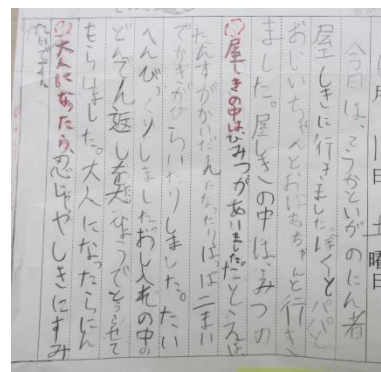 月11日 土曜日
今日は、こうかといがのにん者
屋しきに行きました。ぼくとパパと
おじいちゃんとおばちゃんと行き
ました。屋しきの中はみつの
屋しきの中は、ひみつがありました。たとえば、
たんすがかいだんになったりはっぱ二まい
でかぎがひらいたりしました。たい
へんびっくりしましたおし入れの中の
どんでん返しを
もらいました。大人になったらにん
大人になったら、忍じゃやしきにすみ
たいです。